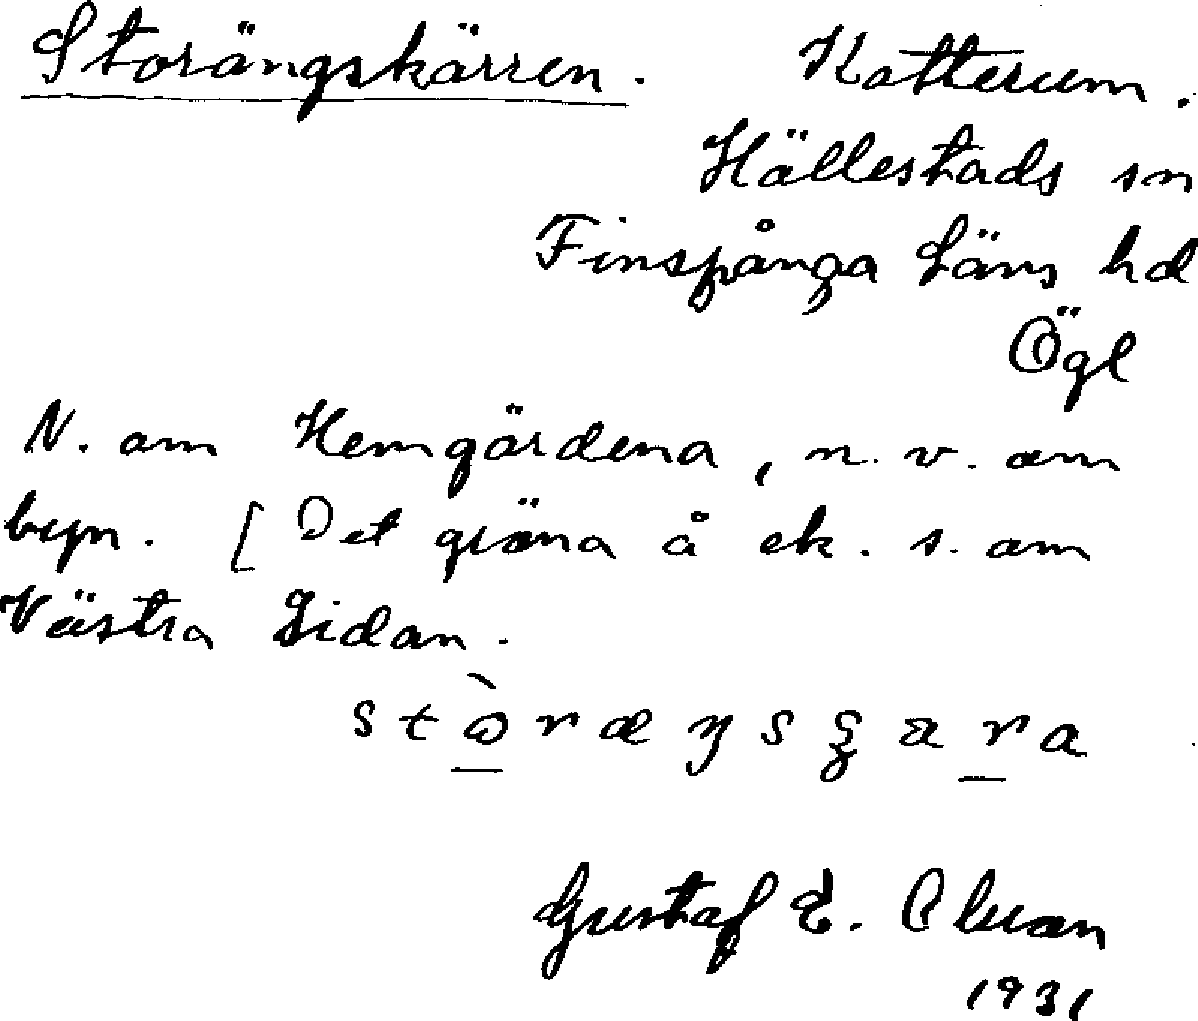 Storängskärren. Katterum.
Hällestads sn
Finspånga läns hd
Ögl
N. om Hemgärdena, n. v. om
byn. [Det gröna å ek. s. om
Västra Lidan.
Gustaf E.
1931